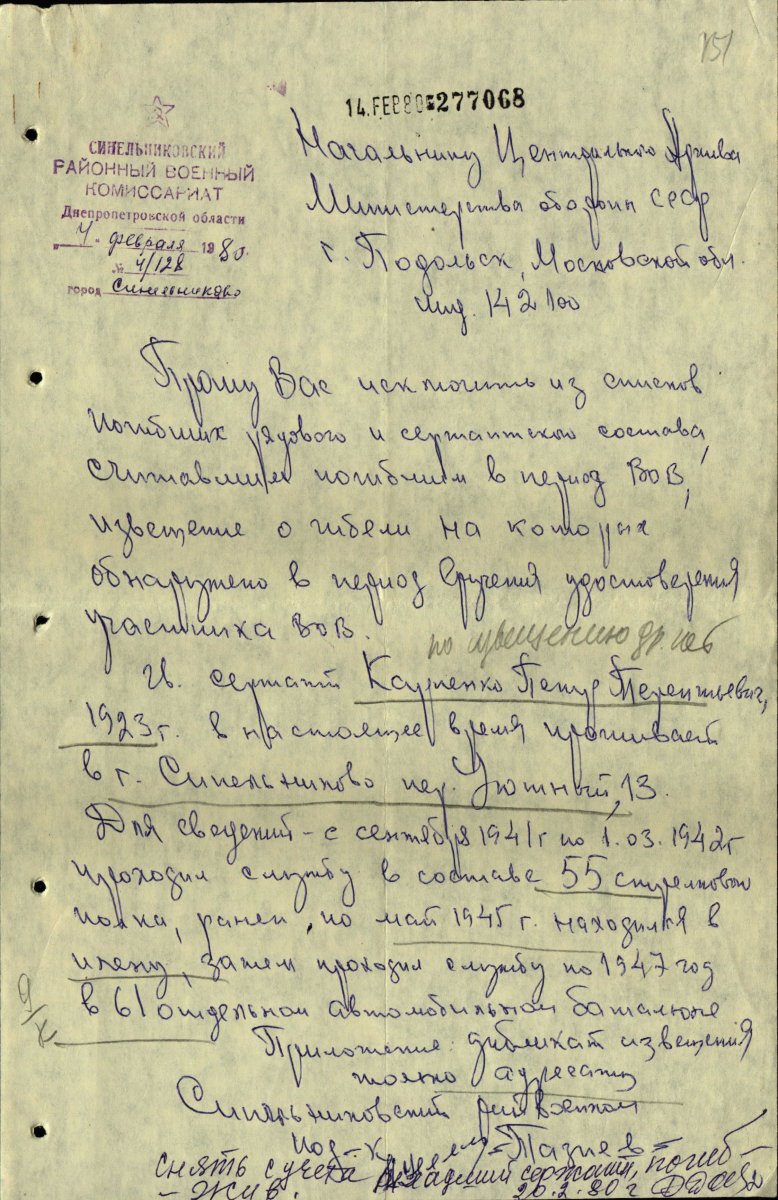 151
14.FEB80 277068
СИНЕЛЬНИКОВСКИЙ
РАЙОННЫЙ ВОЕННЫЙ
КОМИССАРИАТ
Днепропетровской области
"4" февраля 1980.
№ 4/128
город Синельниково
Начальнику Центрального Архива
Министерства обороны СССР
г. Подольск, Московской обл.
инд. 142100
Прошу Вас исключить из списков
погибших рядового и сержантского состава,
считавшимся погибшим в период ВОВ,
извещение о гибели на которых
обнаружено в период вручения удостоверения
участника ВОВ.
по извещению
Гв. сержант Карпенко Петр Терентьевич,
1923 г. в настоящее время проживает
в г. Синельниково пер. Уютный, 13.
Для сведений - с сентября 1941 г по 1.03.1942 г
проходил службу в составе 55 стрелкового
полка, ранен, по май 1945 г. находился в
плену, затем проходил службу по 1947 год
в 61 отдельном автомобильном баталионе
Приложение: дубликат извещения
только адресату
Синельниковский райвоенком
под-к
снять с учета младший сержант, погиб -
- жив. 20.2.80 г